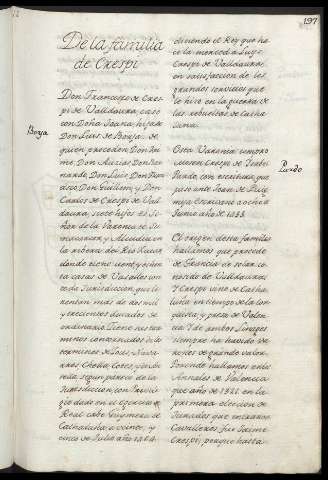 197
De la familia
de Crespi
Don Francisco de Cres
pi de Valldaura, casò
con Doña Juana hija de
Borja
Don Luis de Borja. de
quien proceden Don Jay
me, Don Ausias, Don Ber
nardo, Don Luis, Don Fran
cisco, Don Guillem, y Don
Carlos de Crespi de Vall
daura, siete hijos. Es Se
ñor de la Varonia de Su
macarcer, y Alcudia en
la ribera del Rio Xucar
donde tiene veinte y ocho
ta casas de Vasallos con
toda Jurisdiccion, que le
rentan mas de dos mil
y trecientos ducados de
ordinario. Tiene sus ter
minos contornados de los
terminos de
rres, Chella, Cotes, y
Jurisdiccion, con Privile
gio dado en el exercito
Real cabe Guymera de
Cathaluña a veinte, y
cinco de Julio año 1464.
diciendo el Rey que ha
ce la merced a Luys
Crespi de Valldaura,
en satisfaccion de los
grandes servicios que
le hizo en la guerra de
las rebueltas de Catha
luña.
Esta Varonia compro
Mossen Crespi de
Pardo
Pardo, con escritura que
pasò ante Juan de
escrivano a ocho de
Junio año de
El origen desta familia
hallamos que procede
de Francia en solar co
nocido de Valldaura.
Y Crespi vino de Catha
luña en tiempo de la con
quista, y presa de Valen
cia. Y de ambos linages
siempre ha havido Va
rones de grande valor.
Porende hallamos en los
Annales de Valencia
que año de 1321. en la
primera eleccion de
Jurados que entraron
Cavalleros fue Jaime
Crespi, porque hasta